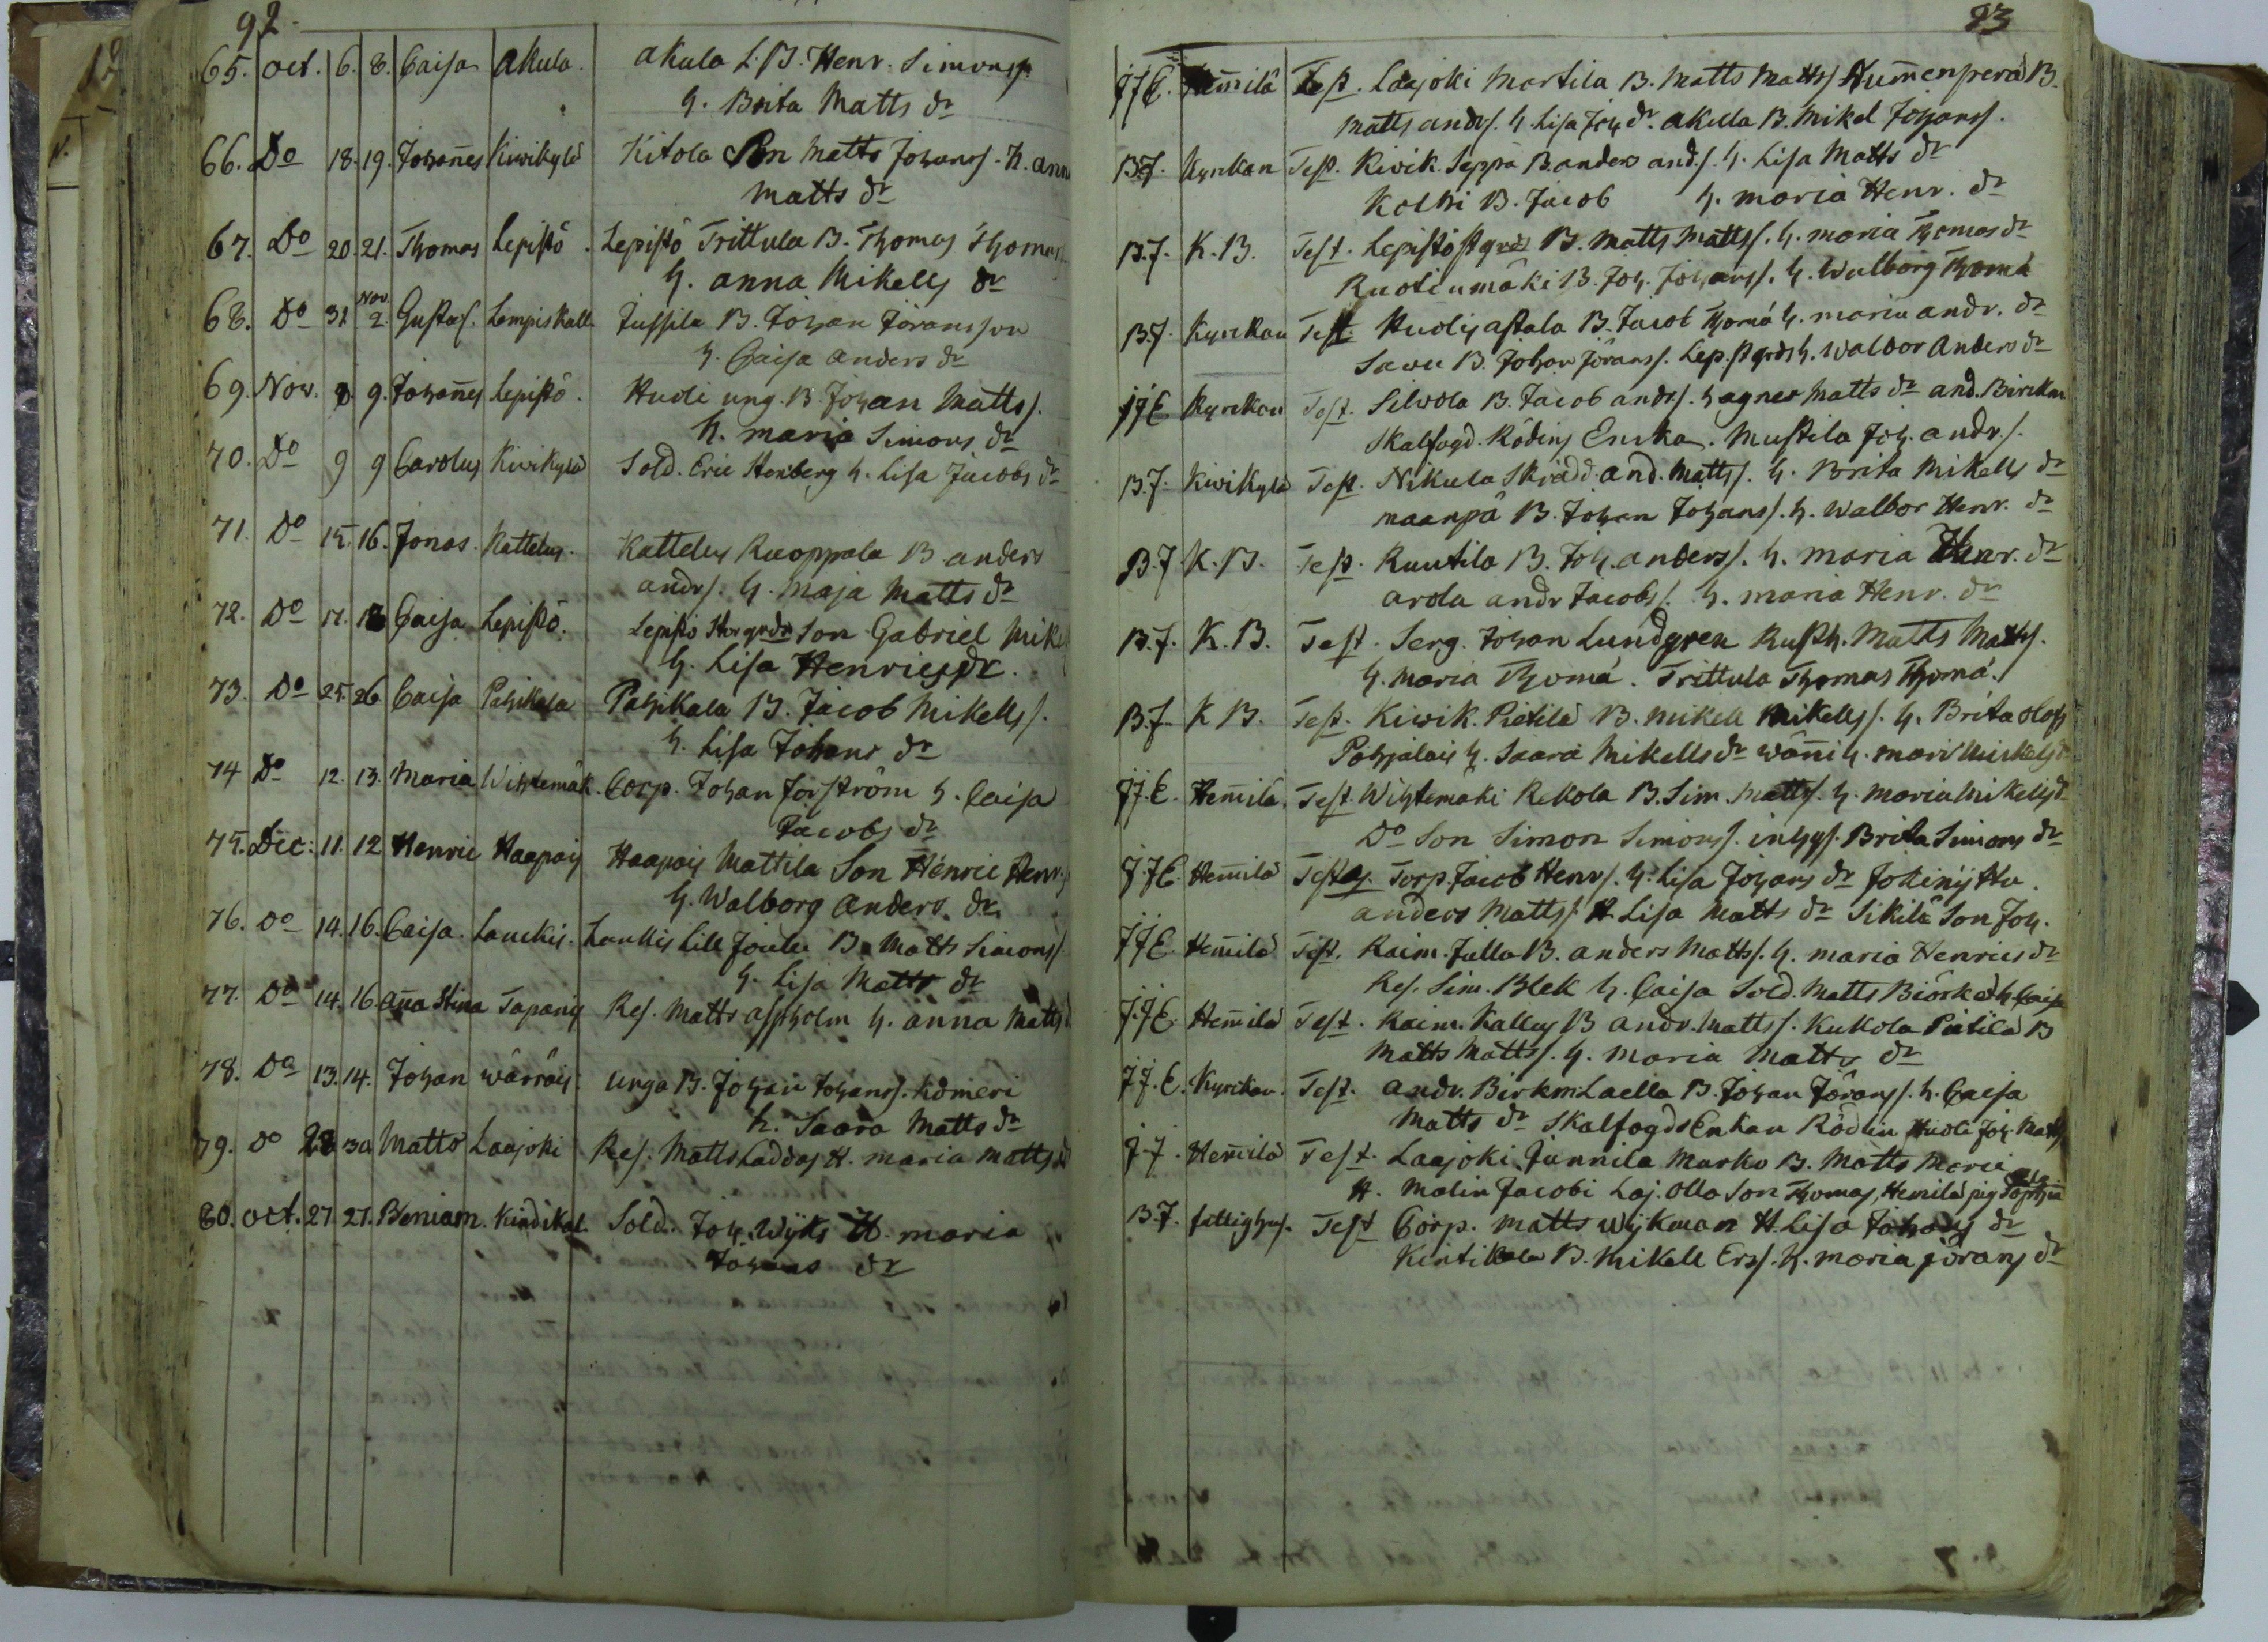 92
65. Oct. 6. 8. Caisa Akula. Akula L. B. Henr. Simonss
H. Brita Matts dr
66. Do 18. 19. Johañes Kiwikylä Kitola Son Matts Johanss. H. Ann
Matts dr
67. Do 20. 21. Thomas Lepistö. Lepistö Trittula B. Thomas Thomas
H. Anna Mikels dr
Nov.
68. Do 31 2. Gustaf. Lempiskall. Jussila B. Johan Jöransson
H. Caisa Anders dr
69. Nov. 8. 9. Johañes Lepistö. Huoli ung. B. Johan Matts s.
H. Maria Simons dr
70. Do 9 9 Carolus Kiwikylä Sold. Eric Stenberg H. Lisa Jacobs dr
71. Do 15. 16. Jonas. Kattelus. Kattelus Kuoppala B Anders
Andrs. H. Maja Matts dr
72. Do 17. 18 Caisa Lepistö. Lepistö Storgrds Son Gabriel Mikel
H. Lisa Henrics dr.
73. Do 25. 26 Caisa Pahikala Pahikala B. Jacob Mikells s.
H. Lisa Johans dr
74 Do 12. 13. Maria Wihtemäk. Corp. Johan Forström H. Caisa
Jacobs dr
75. Dec: 11. 12 Henric Haapois Haapois Mattila Son Henric Henr. s
H. Walborg Anders dr.
76. Do 14. 16. Caisa. Lauckis. Laukis Lill Joulu B. Matts Simons s
H. Lisa Matts dr
77. Do 14. 16. Aña Stina Tapanis Res. Matts Aspholm H. Anna Matts d
78. Do 13. 14. Johan Wärräis Unga B. Johan Johanss.
H. Saara Matts dr
79. Do 28 30 Matts Laajoki Res. Matts Laddas H. Maria Matts d
80. Oct. 27. 27. Beniam. Kindikal. Sold. Joh. Wyks H. Maria
Johans dr
93
JJE. Hem̃ilä Test. Laajoki Martila B. Matts Matts s Hum̃enperä B.
Matts Andrs. H. Lisa Joh dr. Akula B. Mikel Johanss.
B.J. Kyrckan Test. Kiwik. Seppä B. Anders And. s. H. Lisa Matts dr
Kolki B. Jacob H. Maria Henr. dr
B.J. K. B. Test. Lepistö stgrds B. Matts Matts s. H. Maria Thomas dr
Ruotiumäki B. Joh. Johanss. H. Walborg Thomæ
B.J. Kyrckan Test. Huolisastala B. Jacob Thomæ H. Maria Andr. dr
Sawu B. Johan Jöranss. Lep. stgrds H. Walbor Anders dr
JJE Kyrckan Test. Silvola B. Jacob Andrs. H Agnes Matts dr And. Birckm
Skalfogd. Rödins Encka. Mustila Joh. Andrs.
B.J. Kiwikylä Test. Nikula Skrädd. And. Matts s. H. Brita Mikells dr
Maanpä B. Johan Johanss. H. Walbor Henr. dr
B.J K. B. Test. Ruutila B. Joh. Anders s. H. Maria Henr. dr
Arola Andr Jacobs s. H. Maria Henr. dr
B.J. K. B. Test. Serg. Johan Lundgren Rusth. Matts Matts s.
H. Maria Thomæ. Trittula Thomas Thomæ.
B.J. K B. Test. Kiwik. Pietilä B. Mikell Mikells s. H. Brita Olofs
Pohjalais H. Saara Mikells dr Wäñi H. Mari Mickels d
JJ. E. Hem̃ilä. Test. Wihtemäki Rekola B. Sim. Matts s. H. Maria Mikels d
Do Son Simon Simons s. inhys. Brita Simons dr
J.JE. Hem̃ilä Testes. Torp. Jacob Henrs. H. Lisa Johans dr
Anders Matts s. H. Lisa Matts dr Sikilä Son Joh.
JJE Hem̃ilä Test. Raim. Julla B. Anders Matts s. H. Maria Henrics dr
Res. Sim. Blek H. Caisa Sold. Matts Biörk H Caisa
J.J.E. Hem̃ilä Test. Raim. Kallus B Andr. Matts s. Kukola Pietilä B
Matts Matts s. H. Maria Matts dr
J.J. E. Kyrckan. Test. Andr. Birkm. Laella B. Johan Jöranss. H. Caisa
Matts dr Skalfogds Enkan Rödin Huoli Joh. Matts
J.J. Hem̃ilä Test. Laajoki Junnila Marko B. Matts
H. Malin Jacobi Laj. Olla Son Thomas, Hemilä pig Sophia
B.J. fattighus. Test Corp. Matts Wijkman H. Lisa Johans dr
Kintikala B. Mikell Ers s. H. Maria Jörans dr